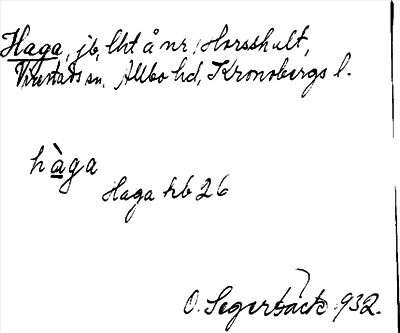 Haga, jb, lht å nr Horsshult,
Virestads sn, Allbo hd, Kronobergs l.
hàga
Haga hb 26
O. Segerbäck 932.